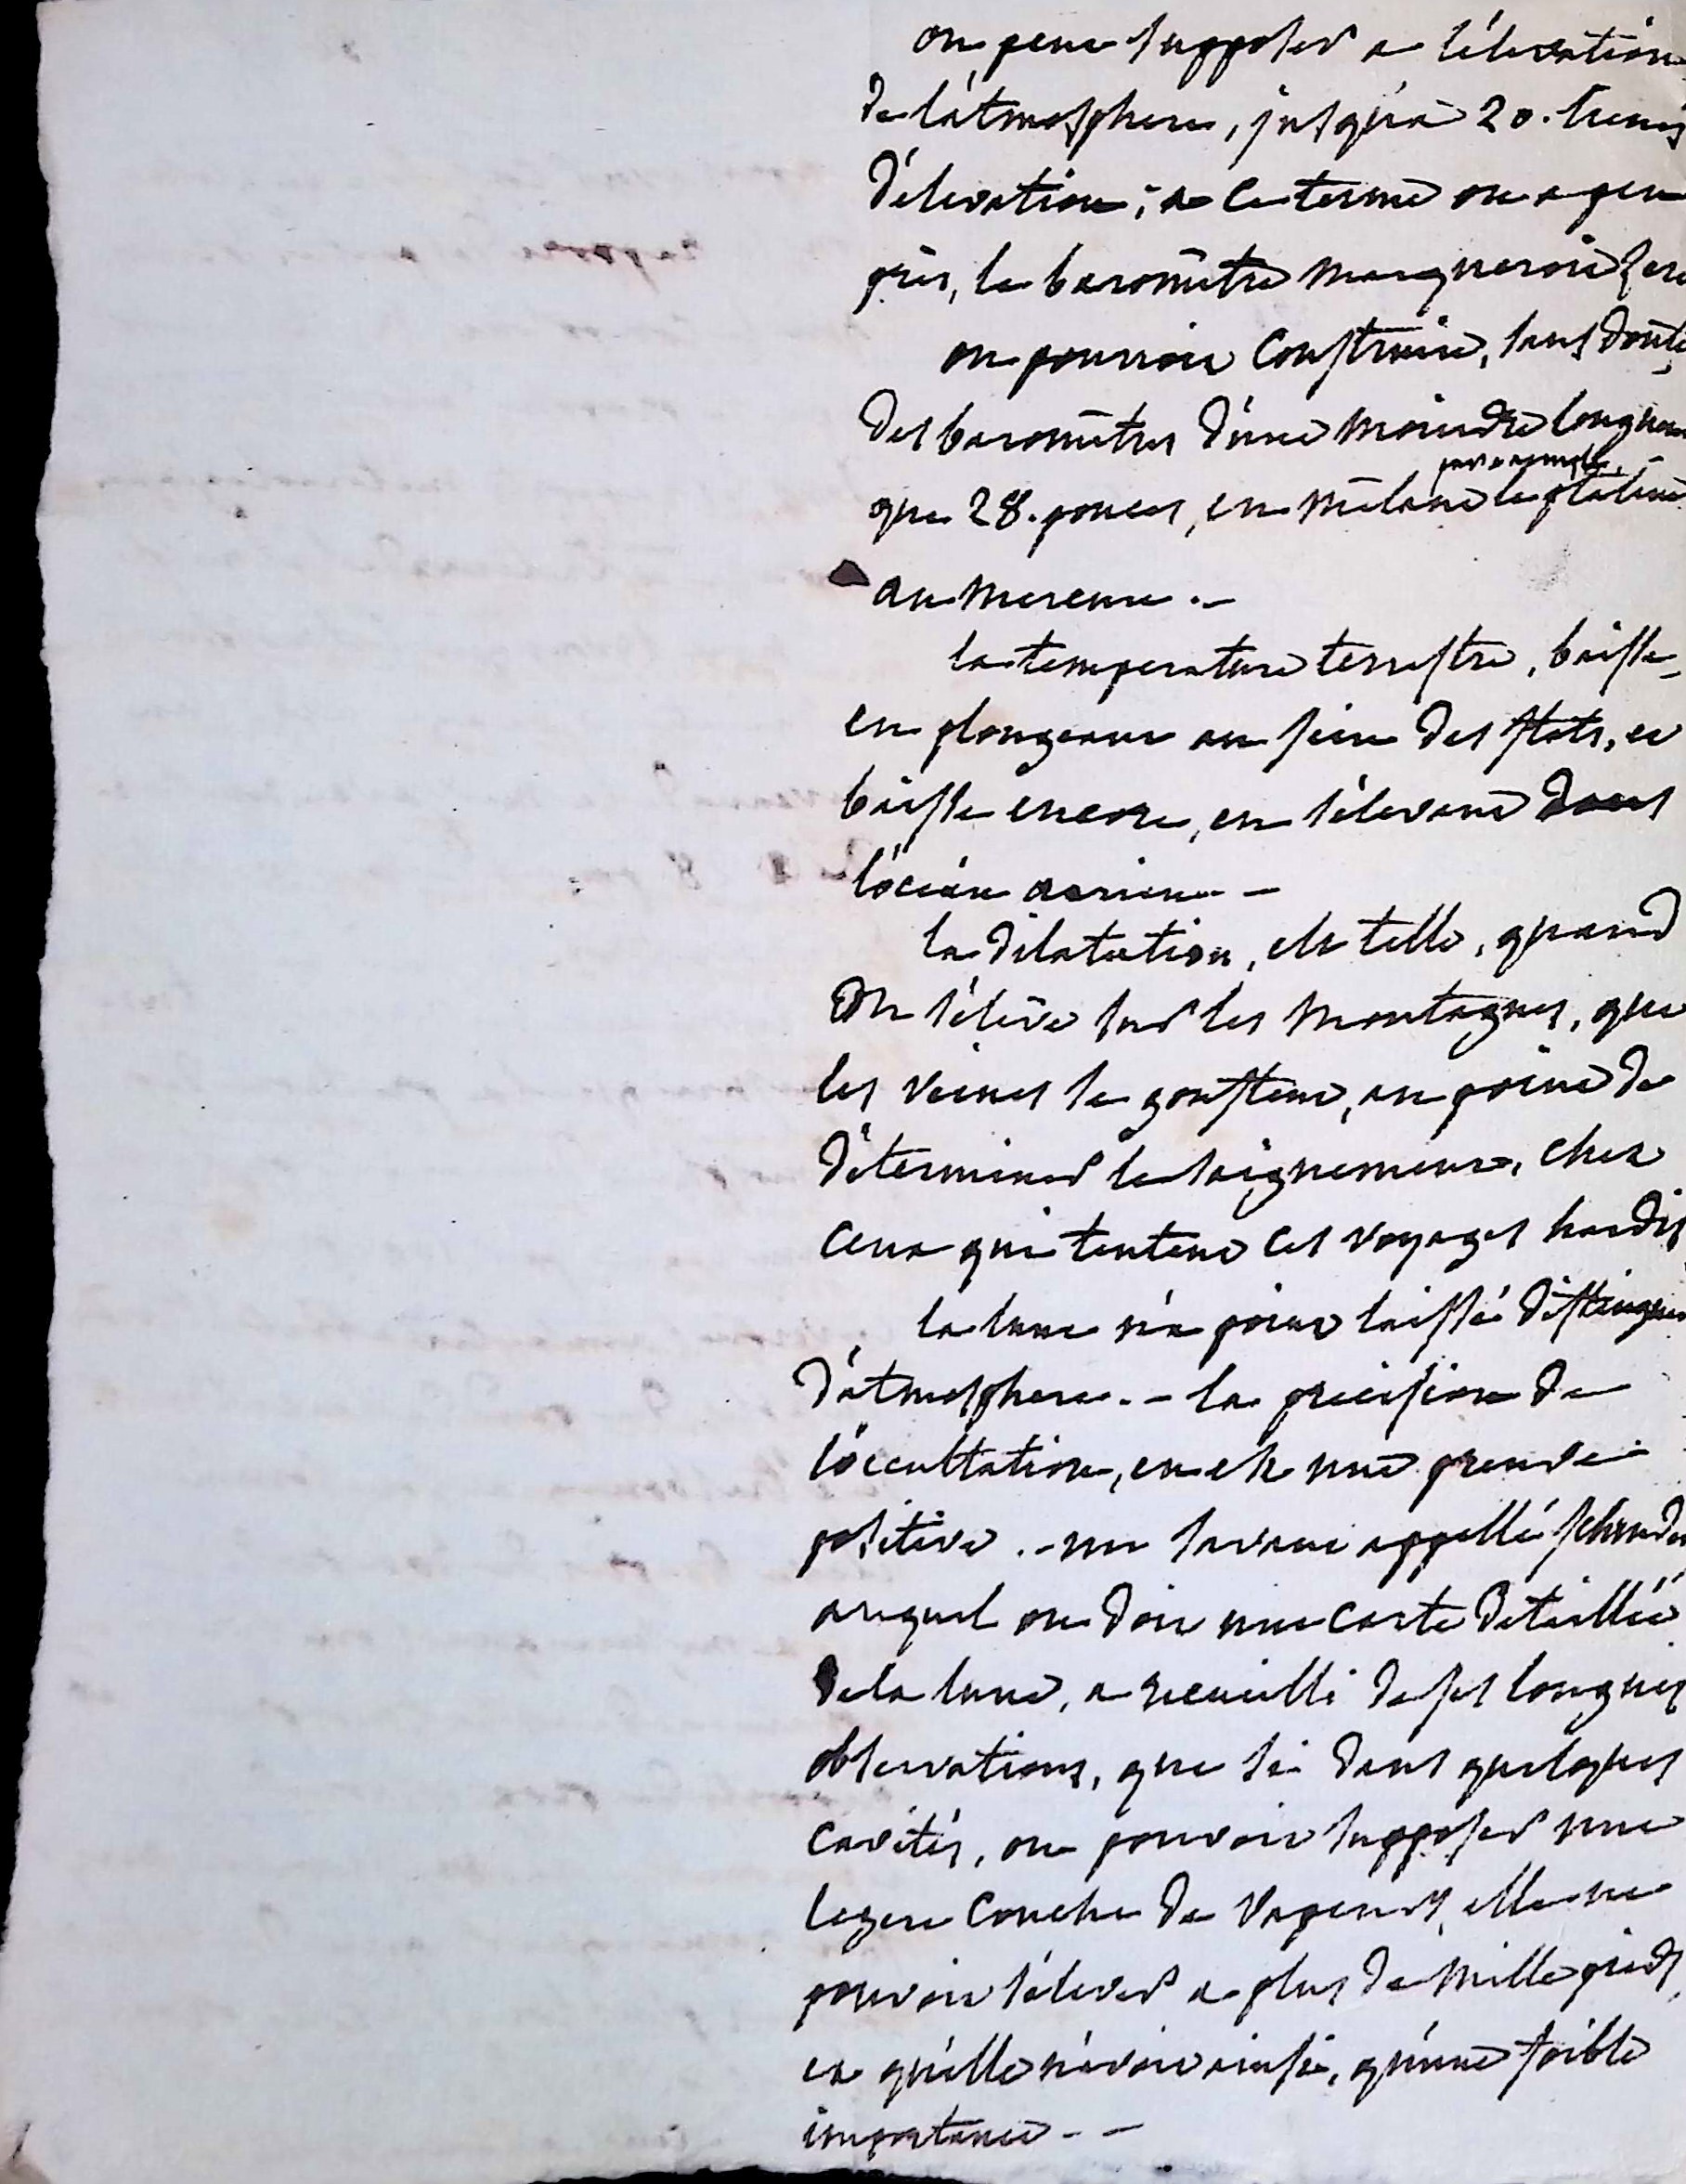 on peut supposer a l'élevation
de l'atmosphere, jusqu'a 20. lieues
d'élevation; a ce terme ou a peu
près, le baromètre marqueroit zero
on pourroit construire, sans doute,
des baromètres d'une moindre longueur
que 28. pouces, en mêlant le platine
au mercure. -
la temperature terrestre, baisse,
en plongeant au sein des flots, et
baisse encore, en s'élevant dans
l'océan aerien - -
la dilatation, est telle, quand
on s'élève sur les montagnes, que
les veines se gonflent, au point de
déterminer le saignement, chez
ceux qui tentent ces voyages hardis
la lune n'a point laissé distinguer
d'atmosphere. - la precision de
l'occultation, en est une preuve
positive. - un savant appellé
auquel on doit une carte detaillée
de la lune, a recueilli de ses longues
observations, que si dans quelques
cavités, on pouvoit supposer une
legere couche de vapeurs, elle ne
pouvoit s'élever a plus de mille pieds,
et qu'elle n'avoit ainsi, qu'une foible
importance - -